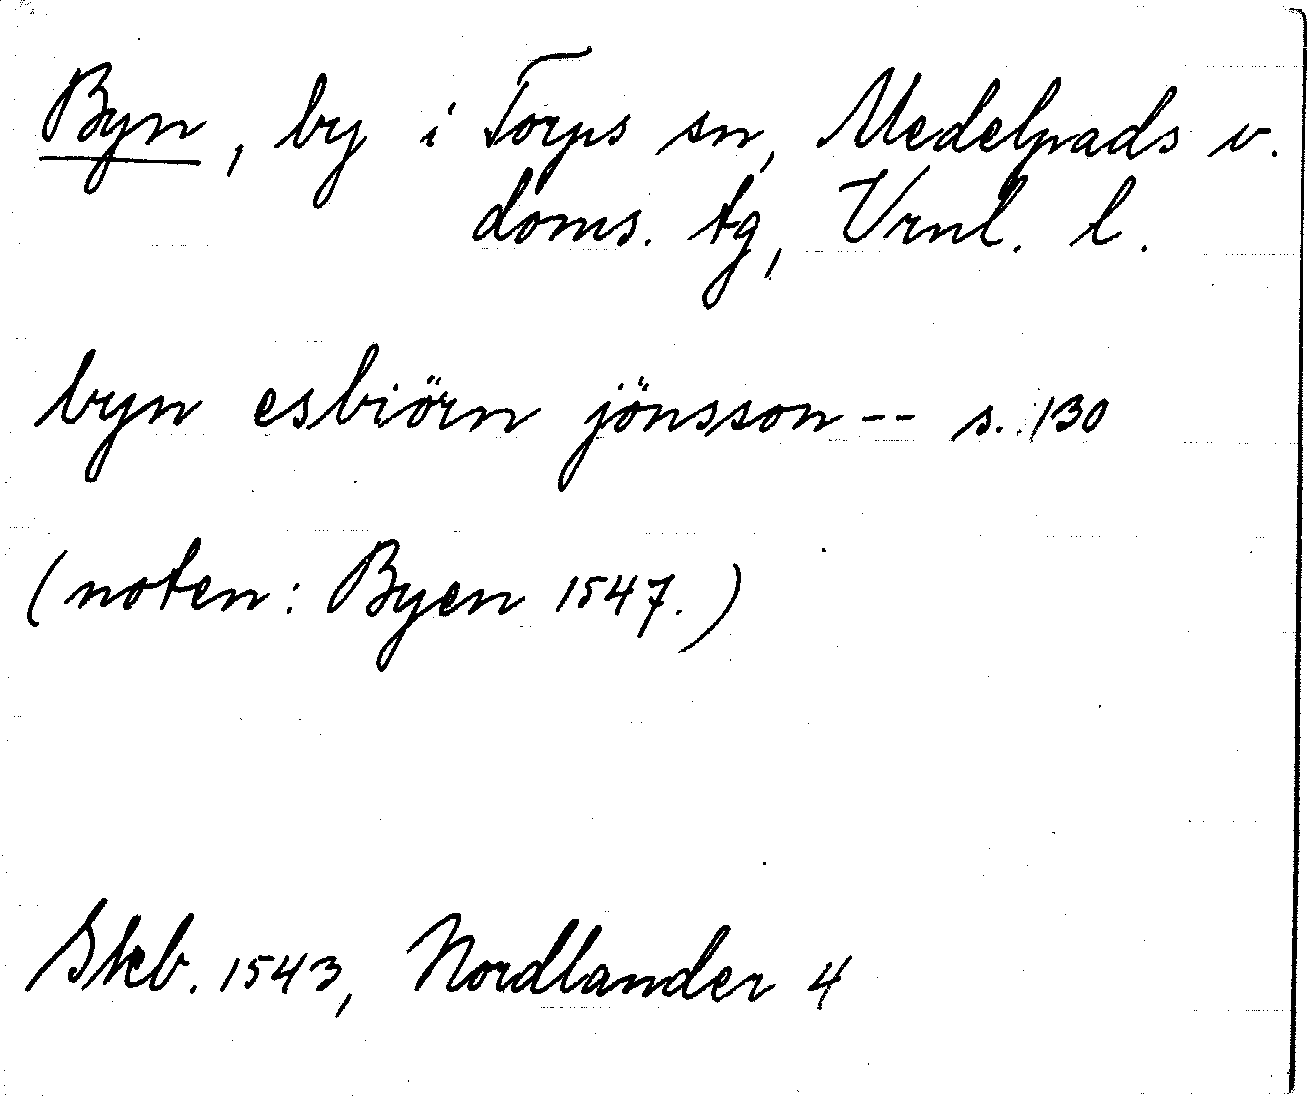 Byn, by i Torps sn, Medelpads v.
doms. tg, Vrnl. l.
byn esbiörn jönsson -- s. 130
(noten: Byen 1547.)
Skb. 1543, Nordlander 4